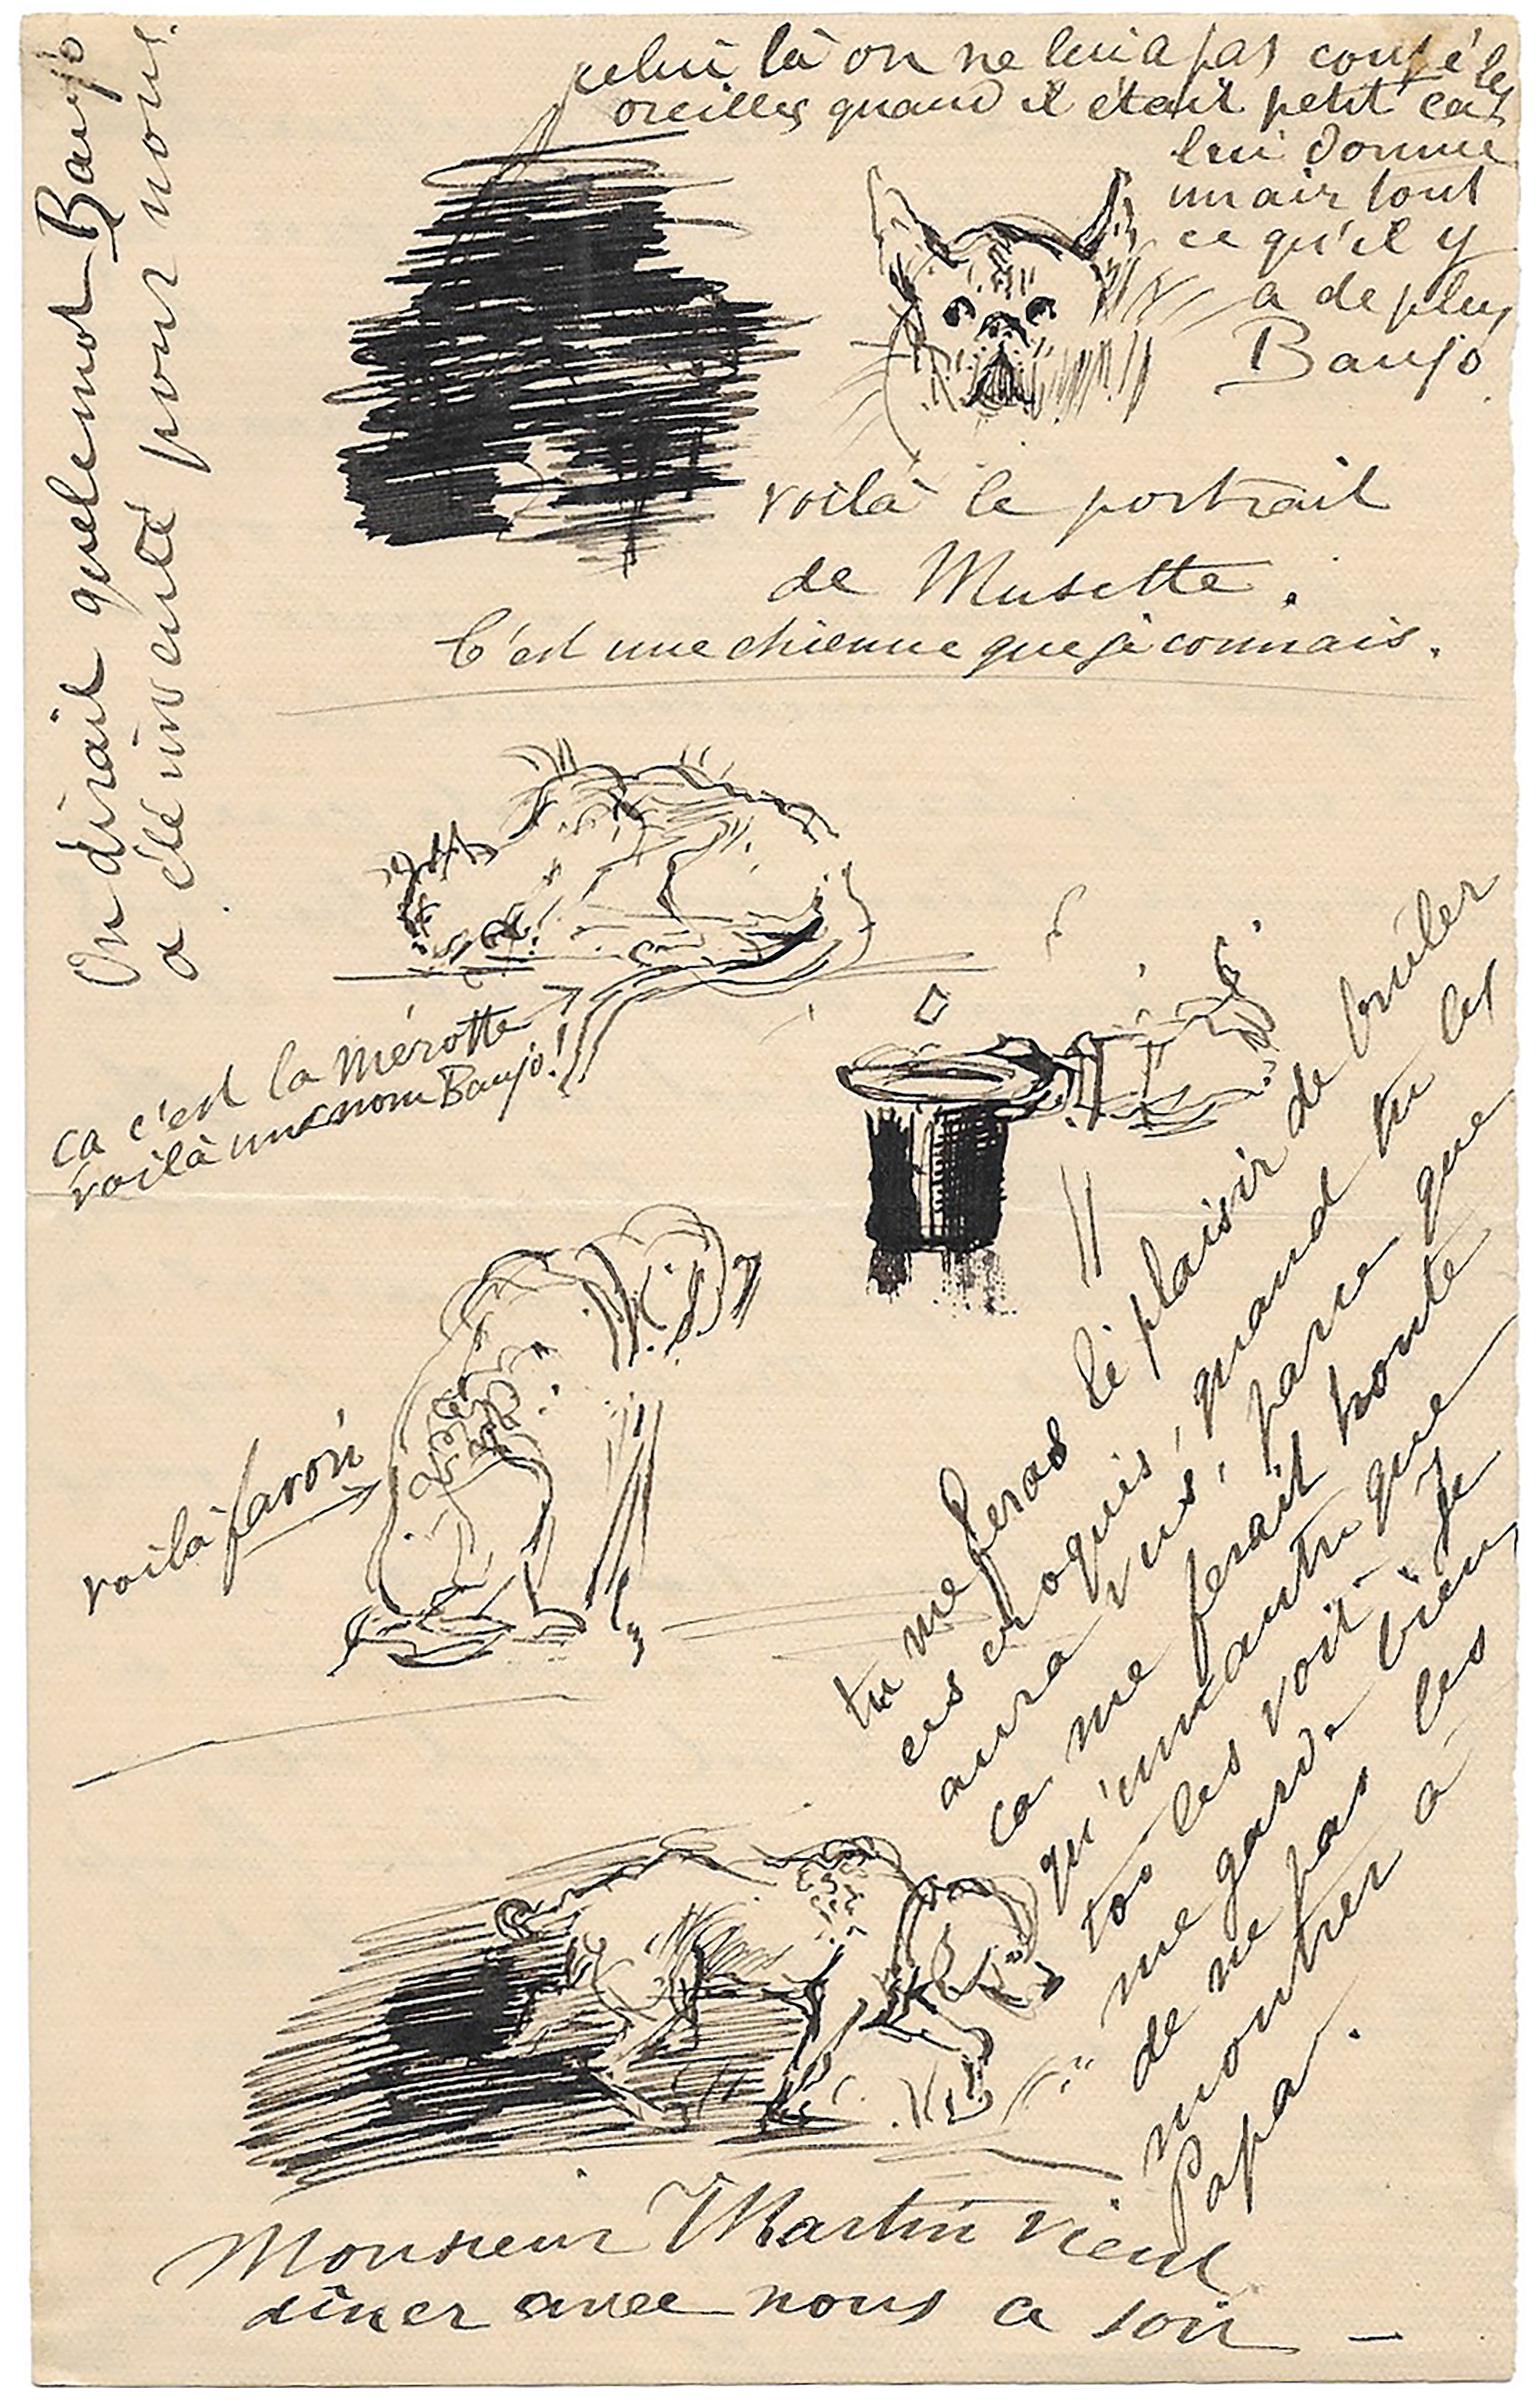 celui là on ne lui a pas coupé les
oreilles quand il était petit ça
lui donne
un air tout
ce qu'il y
a de plus
Banjo
On dirait que le mot Banjo
a été inventé pour nous.
voilà le portrait
de Musette.
C'est une chienne que je connais.
ça c'est la mérotte
voilà un nom Banjo!
voilà faron
tu me feras le plaisir de brûler
ces croquis, quand tu les
aura vus, parce que
ça me ferait honte
qu'un autre que
toi les voit. Je
me garde bien
de ne pas les
montrer à
Papa.
Monsieur Martin vient
dîner avec nous ce soir —